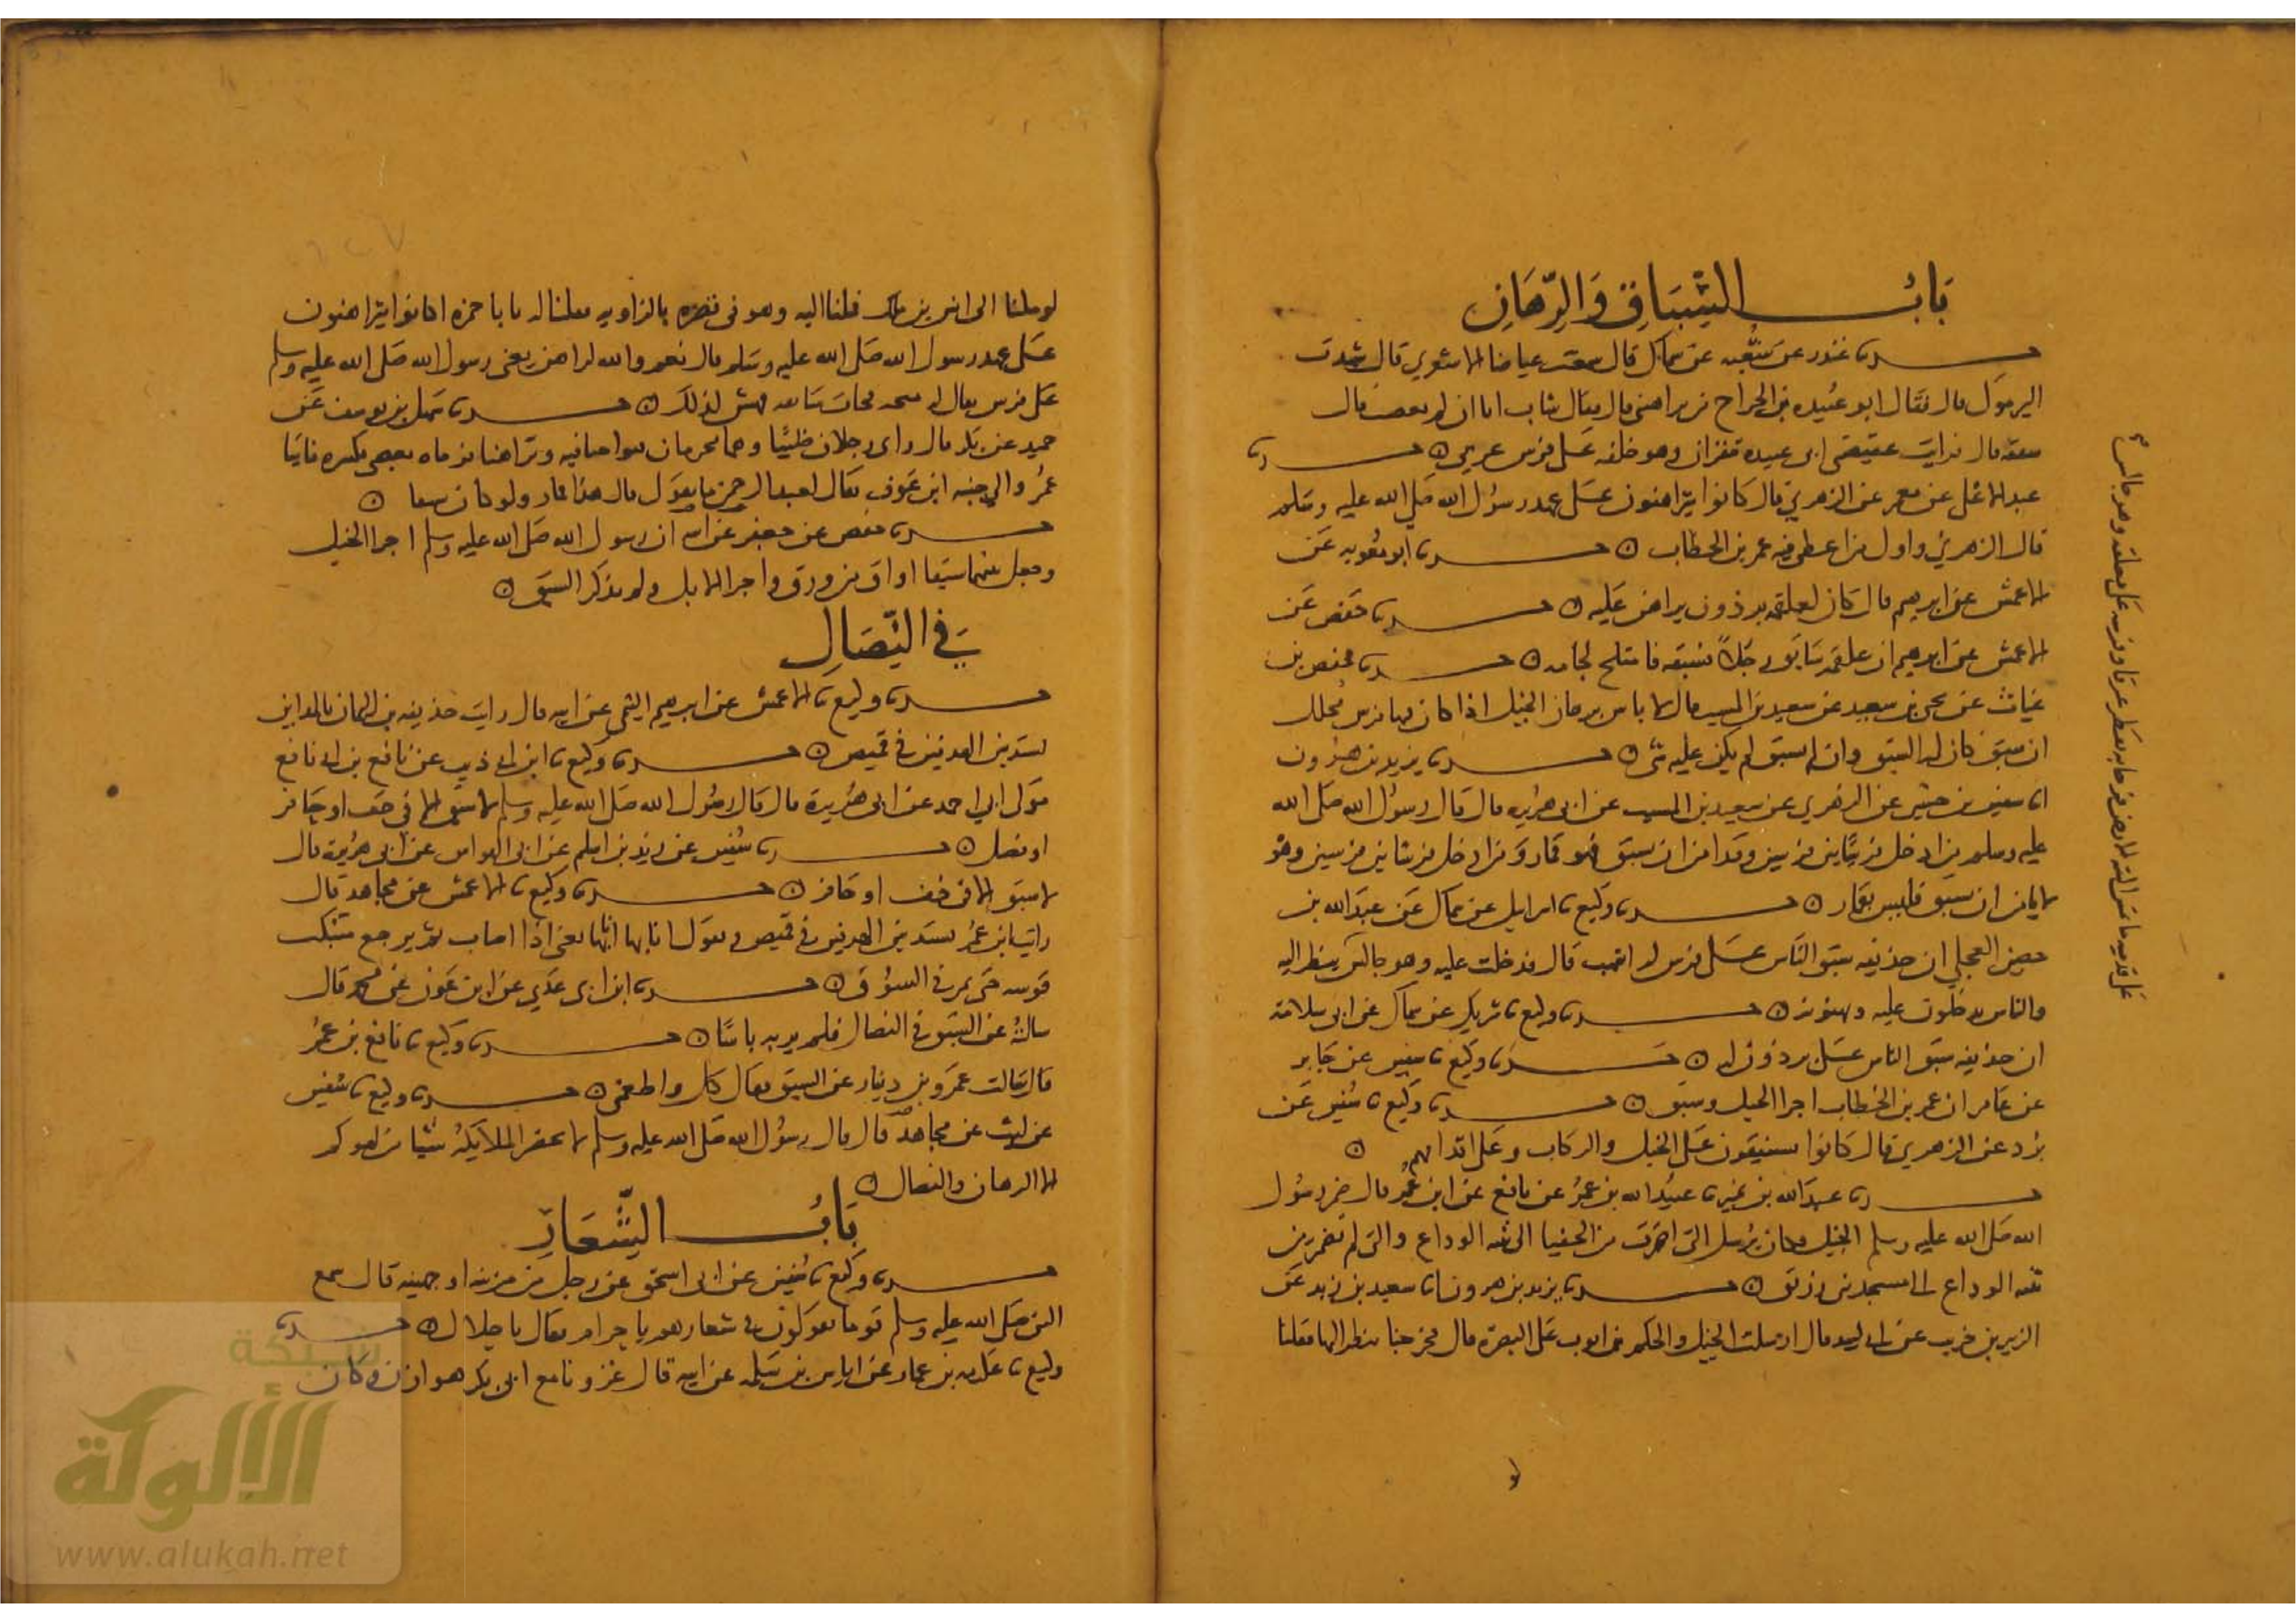 باب السباق والرهان
حدثنا غندر عن شعبه عن سماك قال سمعت عياضا الاشعري قال شهدت
اليرموك قال فقال ابو عبيده بن الجراح من يراهنني قال فقال شاب انا ان لم تغضب قال
فسبقه قال فرايت عقيصتي ابي عبيده تنقزان وهو خلفه على فرس عربي حدثنا
عبد الاعلى عن معمر عن الزهري قال كانوا يتراهنون على عهد رسول الله صلى الله عليه وسلم
قال الزهري واول من اعطى فيه عمر بن الخطاب حدثنا ابو معويه عن
الاعمش عن ابرهيم قال كان لعلقمه برذون يراهن عليه حدثنا حفص عن
الاعمش عن ابرهيم ان علقمه سابق رجلا فسبقه فامتلخ لجامه حدثنا حفص بن
غياث عن يحيى بن سعيد عن سعيد بن المسيب قال لا باس برهان الخيل اذا كان فيها فرس محلل
ان سبق كان له السبق وان لم يسبق لم يكن عليه شي حدثنا يزيد بن هرون
انا سفين بن حسين عن الزهري عن سعيد بن المسيب عن ابي هريره قال قال رسول الله صلى الله
عليه وسلم من ادخل فرسا بين فرسين وقد امن ان يسبق فهو قمار ومن ادخل فرسا بين فرسين وهو
لا يامن ان يسبق فليس بقمار حدثنا وكيع نا اسرايل عن سماك عن عبد الله بن
حصين العجلي ان حذيفه سبق الناس على فرس له اشهب قال فدخلت عليه وهو جالس ينظر اليه
والناس يدخلون عليه ويهنونه حدثنا وكيع نا شريك عن سماك عن ابي سلامة
ان حذيفه سبق الناس على برذون له حدثنا وكيع نا سفين عن جابر
عن عامر ان عمر بن الخطاب اجرا الخيل وسبق حدثنا وكيع نا سفين عن
برد عن الزهري قال كانوا يستبقون على الخيل والركاب وعلى اقدامهم
حدثنا عبد الله بن نمير نا عبيد الله بن عمر عن نافع عن ابن عمر قال ضمر رسول
الله صلى الله عليه وسلم الخيل وكان يرسل التي اضمرت من الحفيا الى ثنيه الوداع والتي لم تضمر من
ثنيه الوداع الى مسجد بني زريق حدثنا يزيد بن هرون انا سعيد بن زيد عن
الزبير بن خريت عن ابي لبيد قال ارسلت الخيل والحكم بن ايوب على البصرة قال فخرجنا ننظر اليها فقلنا
على قدميه ما تمس اليته الارض فرحا به يقطر عرقا وفرسه على معلفه وهو جالس
لو ملنا الى انس بن مالك فملنا اليه وهو في قصره بالزاويه فقلنا له يا با حمزه اكانوا يتراهنون
على عهد رسول الله صلى الله عليه وسلم قال نعم والله لراهن يعني رسول الله صلى الله عليه وسلم
على فرس يقال له سبحه فجات سابقه فهش لذلك حدثنا سهل بن يوسف عن
حميد عن بكر قال راى رجلان ظبيا وهما محرمان فتواخيا فيه وتراهنا فرماه بعصى فكسره فاتيا
عمر والى جنبه ابن عوف فقال لعبد الرحمن ما تقول قال هذا قمار ولو كان سبقا
حدثنا حفص عن جعفر عن ابيه ان رسول الله صلى الله عليه وسلم اجرا الخيل
وجعل بينهما سبقا اواق من ورق واجرا الابل ولم يذكر السبق
في النصال
حدثنا وكيع نا الاعمش عن ابرهيم التيمي عن ابيه قال رايت حذيفه بن اليمان بالمداين
يشتد بين الهدفين في قميص حدثنا وكيع نا ابن ابي ذيب عن نافع بن ابي نافع
مولى ابي احمد عن ابي هريرة قال قال رسول الله صلى الله عليه وسلم لا سبق الا في خف او حافر
او نصل حدثنا سفين عن زيد بن اسلم عن ابي الفوارس عن ابي هريرة قال
لا سبق الا في خف او حافر حدثنا وكيع نا الاعمش عن مجاهد قال
رايت ابن عمر يشتد بين الهدفين في قميص ويقول انا بها انا بها يعني اذا اصاب ثم يرجع متنكب
قوسه حتى يمر في السوق حدثنا ابن ابي عدي عن ابن عون عن محمد قال
سالته عن السبق في النصال فلم ير به باسا حدثنا وكيع نا نافع بن عمر
قال سالت عمرو بن دينار عن السبق فقال كل واطعمني حدثنا وكيع نا سفين
عن ليث عن مجاهد قال قال رسول الله صلى الله عليه وسلم لا تحضر الملايكة شيا من لهوكم
الا الرهان والنصال
باب الشعار
حدثنا وكيع نا سفين عن ابي اسحق عن رجل من مزينه او جهينه قال سمع
النبي صلى الله عليه وسلم قوما يقولون في شعارهم يا حرام فقال يا حلال حدثنا
وكيع نا عكرمه بن عمار عن اياس بن سلمه عن ابيه قال غزونا مع ابي بكر هوازن وكان
شبكة
الألوكة
www.alukah.net